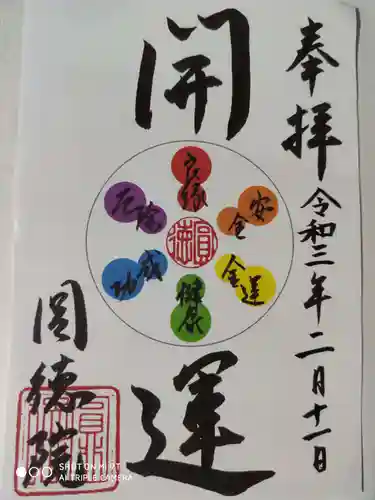 奉拝
令和三年二月十一日
開運
良縁
安全
金運
健康
成功
厄除
圓徳
圓徳院
SHOT ON MI 9T
AI TRIPLE CAMERA